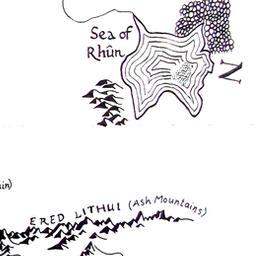 Sea of
Rhûn
Z
ain)
ERED LITHUI (Ash Mountains)